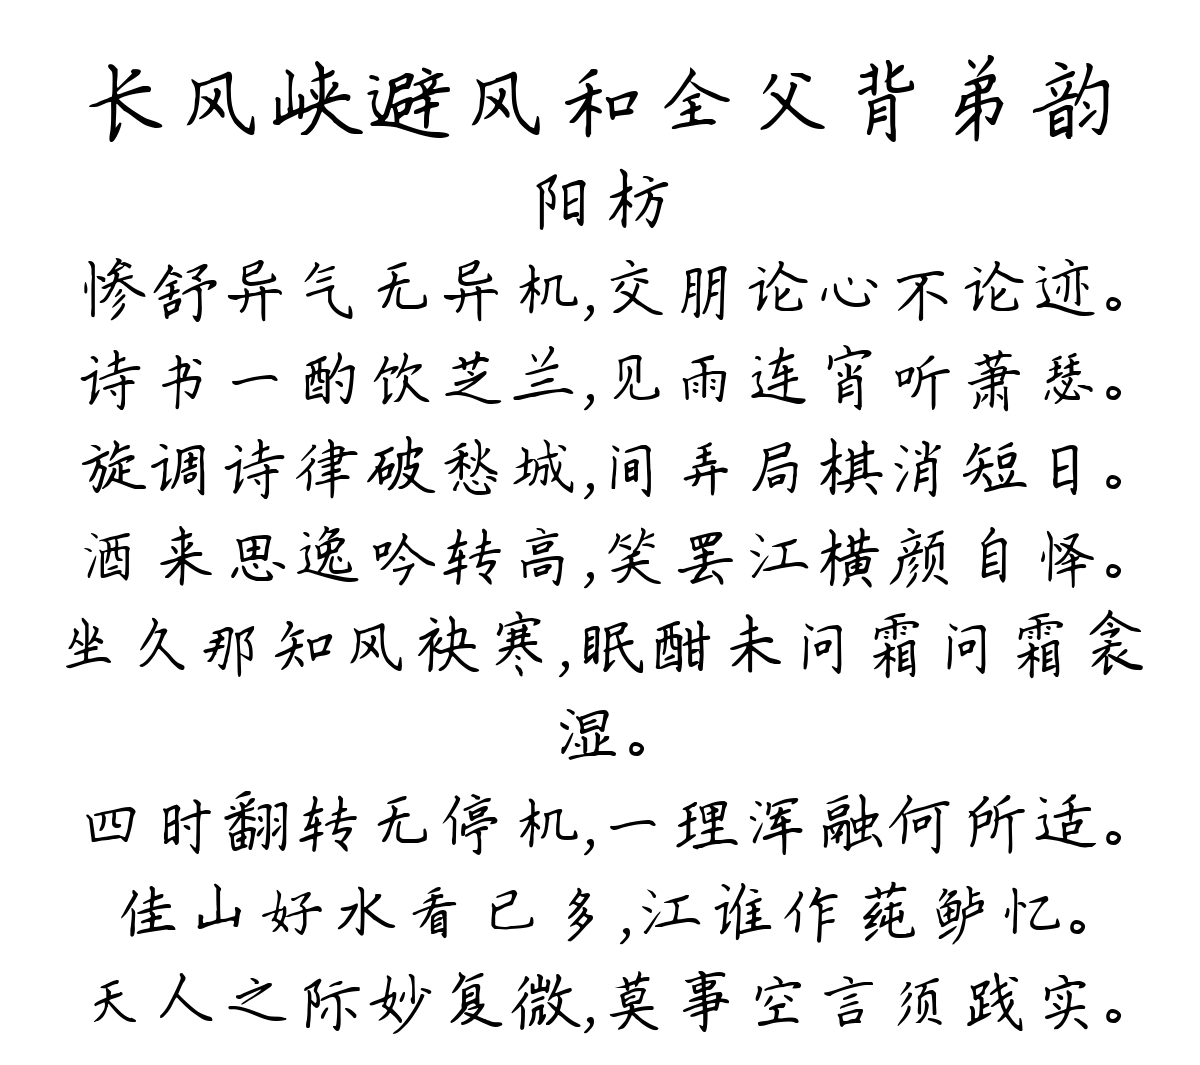 长风峡避风和全父背弟韵
阳枋
惨舒异气无异机,交朋论心不论迹。
诗书一酌饮芝兰,见雨连宵听萧瑟。
旋调诗律破愁城,间弄局棋消短日。
酒来思逸吟转高,笑罢江横颜自怿。
坐久那知风袂寒,眠酣未问霜问霜衾
湿。
四时翻转无停机,一理浑融何所适。
佳山好水看已多,江谁作莼鲈忆。
天人之际妙复微,莫事空言须践实。